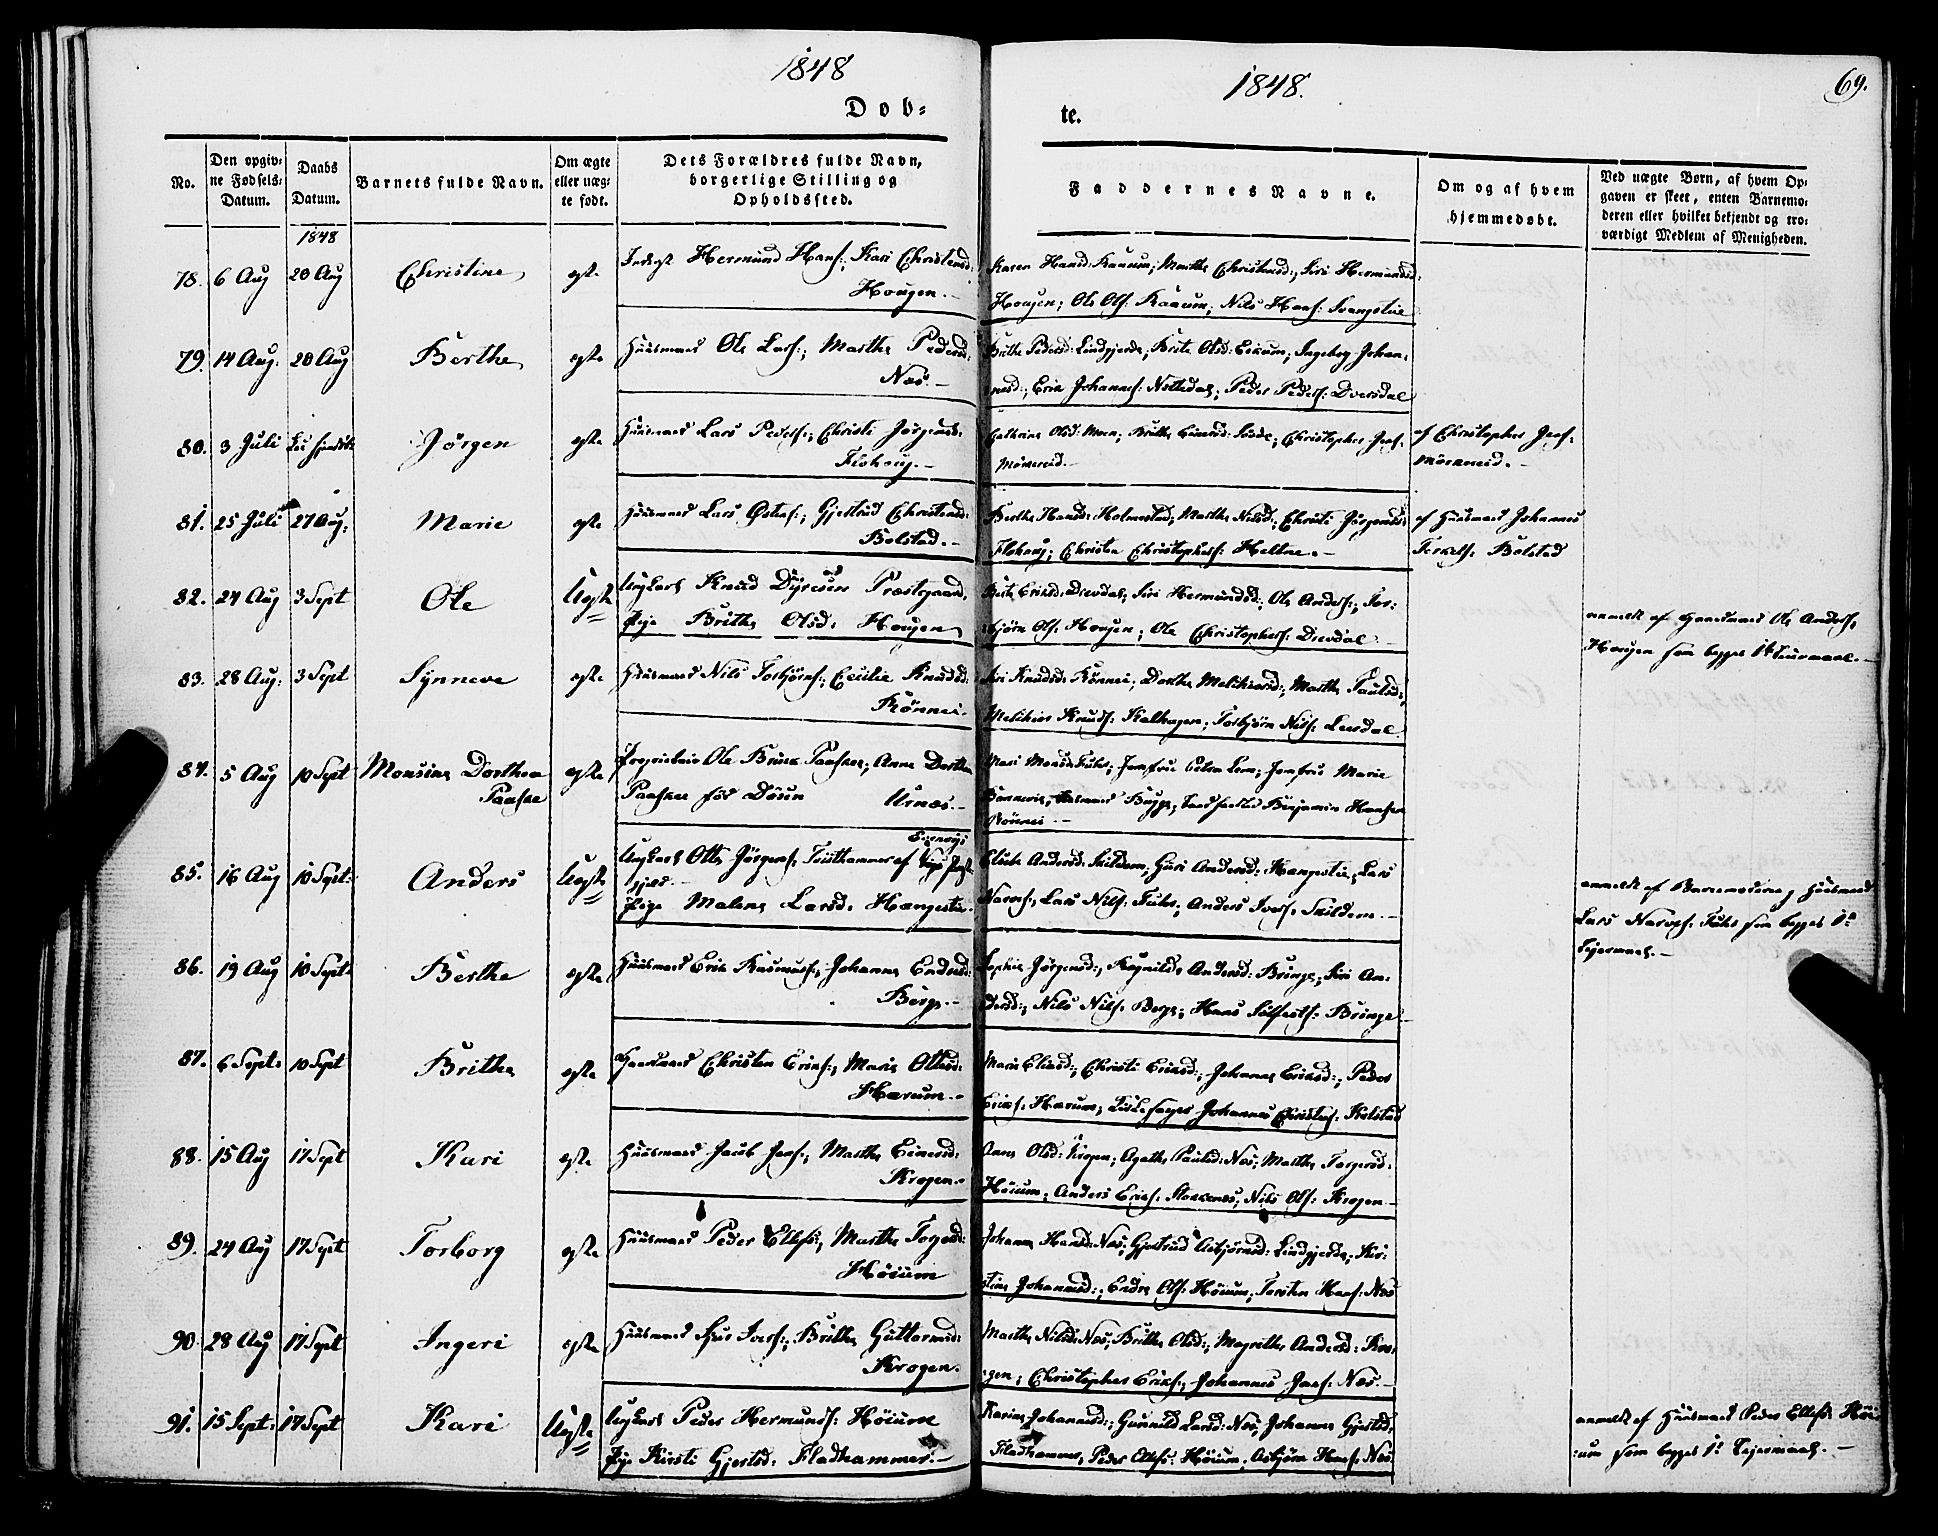 1848
Døb-
1848.
te.
69.
No.
Den opgiv-
ne Fødsels-
Datum.
Daabs
Datum.
Barnets fulde Navn.
Om ægte
eller uæg-
te født.
Dets Forældres fulde Navn,
borgerlige Stilling og
Opholdssted.
Faddernes Navne.
Om og af hvem
hjemmedøbt.
Ved uægte Børn, af hvem Op-
gaven er skeet, enten Barnemo-
deren eller hvilket bekjendt og tro-
værdigt Medlem af Menigheden.
1848
78. 6 Aug 20 Aug Christine egte Hermund Hans:, Kari Christensd:
Hougen.-
Karen Hansd: Kaarum; Marthe Christensd:, Siri Hermundsd:
Hougen; Ole Ols: Kaarum; Nils Hans:
79. 14 Aug: 20 Aug Berthe egte Huusmand Ole Lars:; Marthe Pedersd:
Næs.-
Brithe Pedersd: Lindgjerde; Brite Olsd: Eikum; Ingeborg Johan-
nesd:, Erik Johannes: ; Peder Peders: Dversdal
80. 3 Juli Jørgen egte Huusmand Lars Peders:, Christi Jørgensd:
Flohoug.-
Cathrine Olsd: Moen; Brithe Einersd: ; Christopher Jens:
Mørkereid.-
af Christopher Jens:
Mørkereid.-
81. 25 Juli 27 Aug: Marie egte Huusmand Lars ; Gjertrud Christensd:
Bolstad.-
Berthe Hansd: Holmestad; Marthe Nilsd:, Christi Jørgensd:
Flohoug; Christen Christophers: Heltne.-
af Huusmand Johannes
Terkels: Bolstad
82. 24 Aug 3 Sept Ole Uegte Ungkarl Knud Præstegaard,
Pige Brithe Olsd: Hougen
Brite Eriksd: ; Siri Hermundsd:; Ole Anders:, Tor-
bjørn Ols: Hougen; Ole Christophers: Drevdal
anmeldt af Gaardmand Ole Anders:
Hougen som begges 1te Leiermaal.-
83. 28 Aug: 3 Sept Synneve egte Huusmand Nils Torbjørns:; Cecilie Knudsd:
Rønnei.
Siri Knudsd: Rønnei; Dorthe Melchiorsd:, Marthe Paulsd:,
Melchior Knuds: Kalhagen; Torbjørn Nils: Leerdal
84. 5 Aug 10 Sept Monsine Dorthea egte Proprietair Ole Paaske; Anne Dorthea
Paaske
Paaske fød Døsen Urnæs.-
; Jomfru Petra Lem; Jomfru Marie
; Benjamin Hansen
Rønnei.-
85. 16 Aug 10 Sept: Anders Uegte Ungkarl Otte Jørgens: af
Pige Malene Larsd: Hangestie.
Andersd: Skildem, Guri Andersd: Hangestie; Lars
; Lars Nils: Fuhr; Anders Ivers: Skildem.-
anmeldt af Barnemoderen og Huusmand
Lars Fuhr som begges 1te
Leiermaal.-
86. 19 Aug 10 Sept: Berthe egte Huusmand Erik Rasmus:, Johanne Endresd:
Berge.-
Sophie Jørgensd:, Ragnilde Andersd: Bringe; Siri An-
dersd:, Nils Nils: Berge; Hans Solfests: Bringe
87. 6 Sept: 10 Sept Brithe egte Gaardmand Christen Eriks:, Marie Ottesd:
Hærum.-
Marie Eliasd:, Christi Eriksd:, Johanne Eriksd:, Peder
Eriks: Hærum; Johannes Kolstad
88. 15 Aug 17 Sept Kari egte Huusmand Jacob Jens:, Marthe Einersd:
Krogen.-
Anne Olsd: Krogen; Agathe Paulsd: Næs; Marthe Torgersd:
Høium; Anders Eriks: ; Nils Ols: Krogen-
89. 24 Aug 17 Sept Torborg egte Huusmand Peder Ellefs:, Marthe
Høium
Johanne Hansd: Næs; Gjertrud Asbjørnsd: Lindgjerde; Kir-
stine Johannesd:, Endre Ols: Høium; Torsten Hans: Næs
90. 28 Aug 17 Sept Ingeri egte Huusmand Ivers:, Brithe Guttormsd:
Krogen.
Marthe Nilsd: Næs; Brithe Olsd:, Magrethe Andersd: Kro-
gen; Christopher Eriks:, Johannes Jens: Næs.-
91. 15 Sept: 17 Sept Kari Uegte Ungkarl Peder Hermunds: Høium
Pige Kirsti Gjertsd: Fladhammer.-
Karine Johannesd:, Gunnild Larsd: Næs; Johanne Gjertsd:
Fladhammer, Peder Ellefs: Høium, Asbjørn Hans: Næs
anmeldt af Huusmand Peder Ellefs: Høi-
um som begges 1te Leiermaal.-